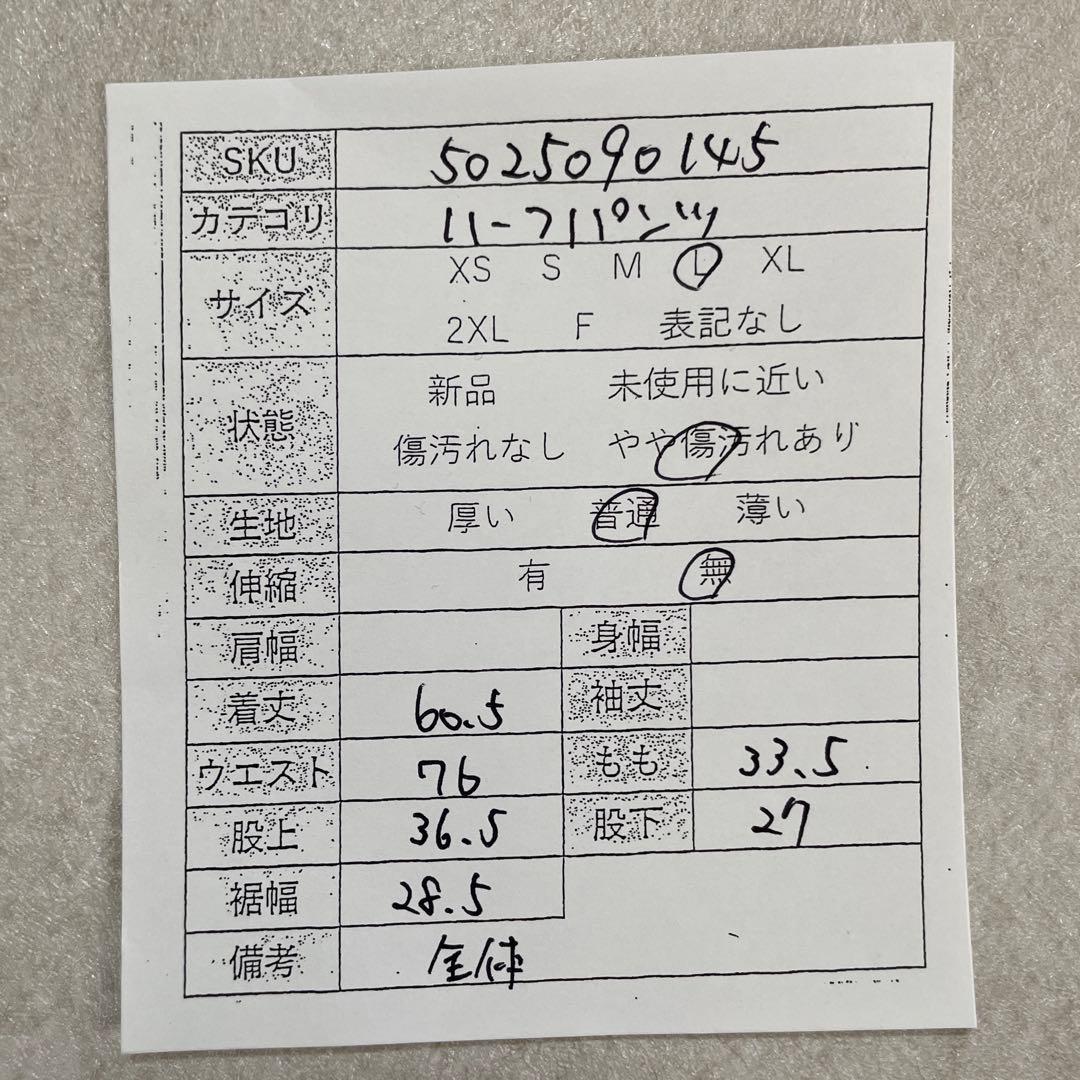 SKU 5025090145
カテゴリ ハーフパンツ
サイズ XS S M L XL
2XL F 表記なし
状態 新品 未使用に近い
傷汚れなし やや傷汚れあり
生地 厚い 普通 薄い
伸縮 有 無
肩幅 身幅
着丈 60.5 袖丈
ウエスト 76 もも 33.5
股上 36.5 股下 27
裾幅 28.5
備考 全体